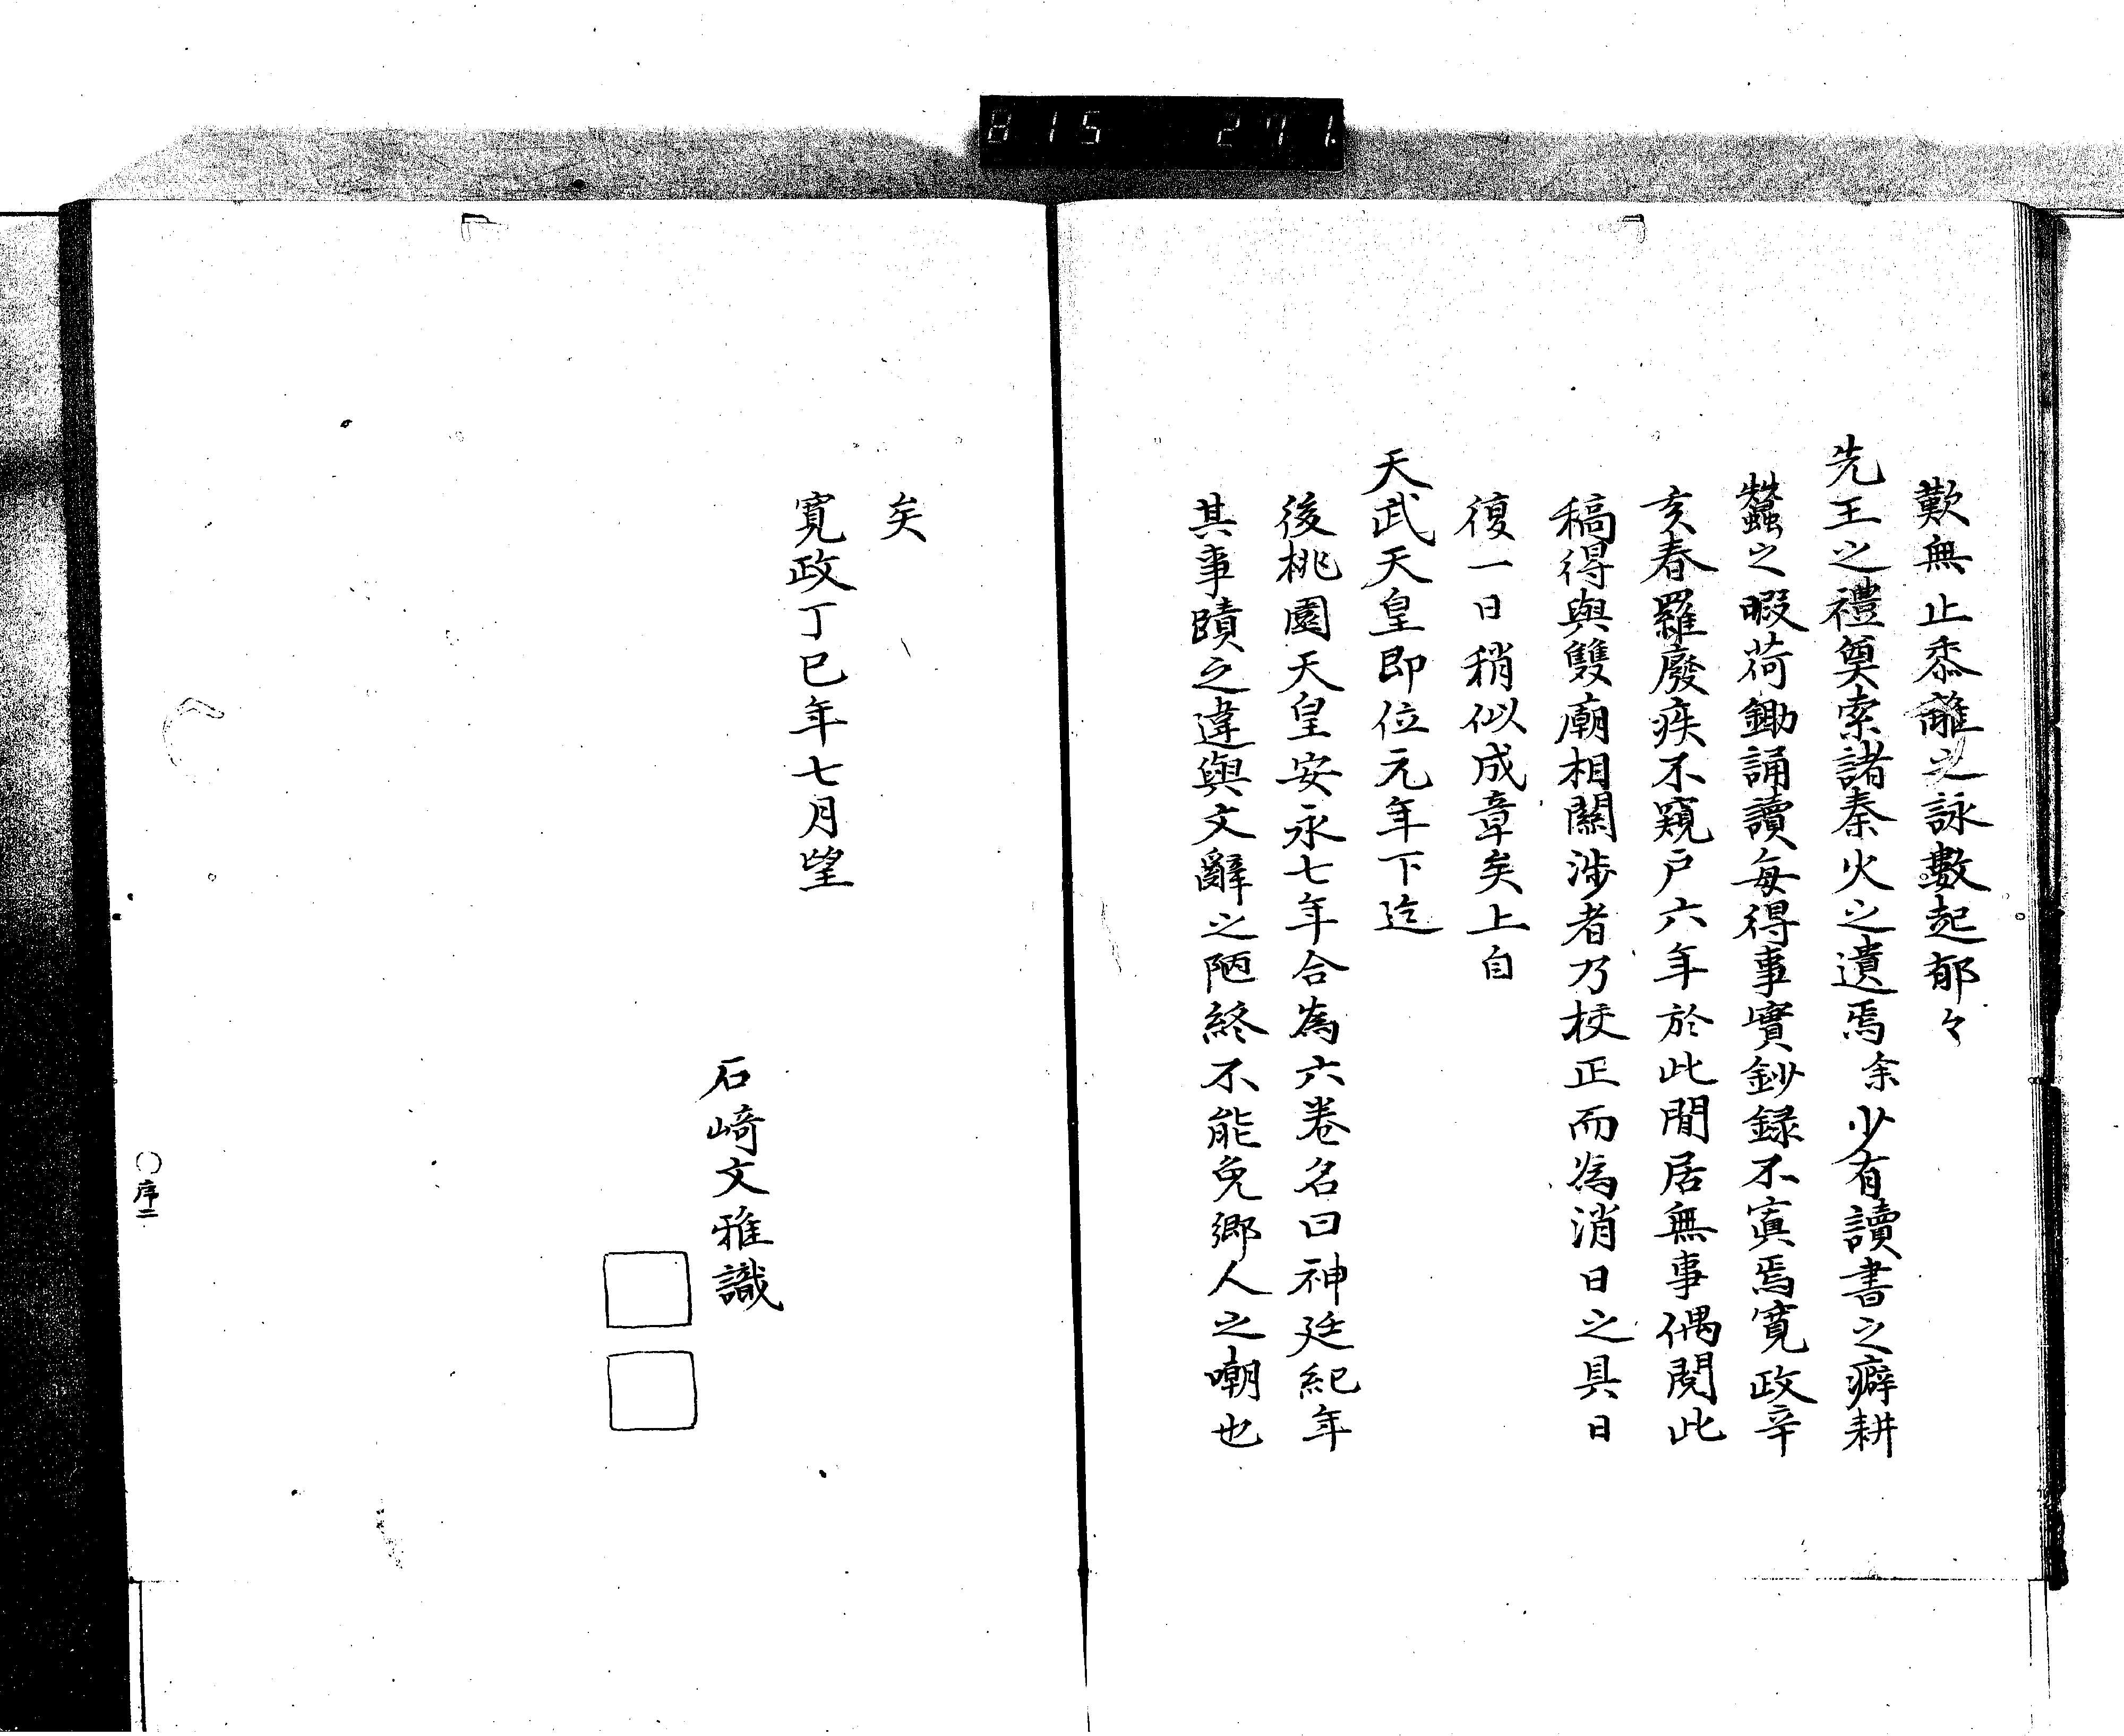 815 271.
歎無止黍離之詠數起郁々
先王之禮奠索諸秦火之遺焉余少有讀書之癖耕
蠶之暇荷鋤誦讀每得事實鈔録不寘焉寬政辛
亥春羅廢疾不窺戶六年於此閒居無事偶閱此
稿得與雙廟相關涉者乃校正而為消日之具日
復一日稍似成章矣上自
天武天皇即位元年下迄
後桃園天皇安永七年合為六卷名曰神廷紀年
其事蹟之違與文辭之陋終不能免鄉人之嘲也
矣
寬政丁巳年七月望
石﨑文雅識
〇序二